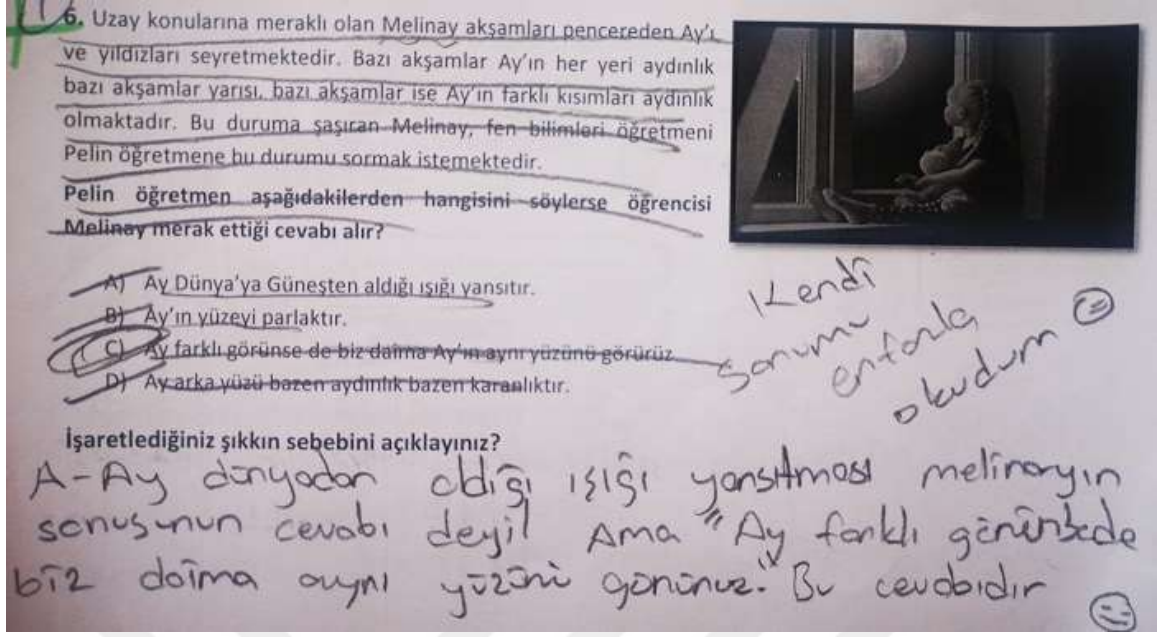 6. Uzay konularına meraklı olan Melinay akşamları pencereden Ay'ı
ve yıldızları seyretmektedir. Bazı akşamlar Ay'ın her yeri aydınlık
bazı akşamlar yarısı, bazı akşamlar ise Ay'ın farklı kısımları aydınlık
olmaktadır. Bu duruma şaşıran Melinay, fen bilimleri öğretmeni
Pelin öğretmene bu durumu sormak istemektedir.
Pelin öğretmen aşağıdakilerden hangisini söylerse öğrencisi
Melinay merak ettiği cevabı alır?
A) Ay Dünya'ya Güneşten aldığı ışığı yansıtır.
B) Ay'ın yüzeyi parlaktır.
C) Ay farklı görünse de biz daima Ay'ın aynı yüzünü görürüz.
D) Ay arka yüzü bazen aydınlık bazen karanlıktır.
Kendi
sorumu
enfazla
okudum
İşaretlediğiniz şıkkın sebebini açıklayınız?
A-Ay dünyadan aldığı ışığı yansıtması melinayın
sorusunun cevabı deyil Ama "Ay farklı görünsede
biz daima aynı yüzünü görürüz." Bu cevabıdır